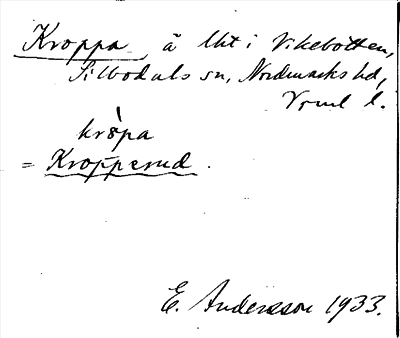 Kroppa ä lht i Vikebotten,
Silbodals sn, Nordmarks hd,
Vrml l.
kròpa
= Kropperud.
E. Andersson 1933.